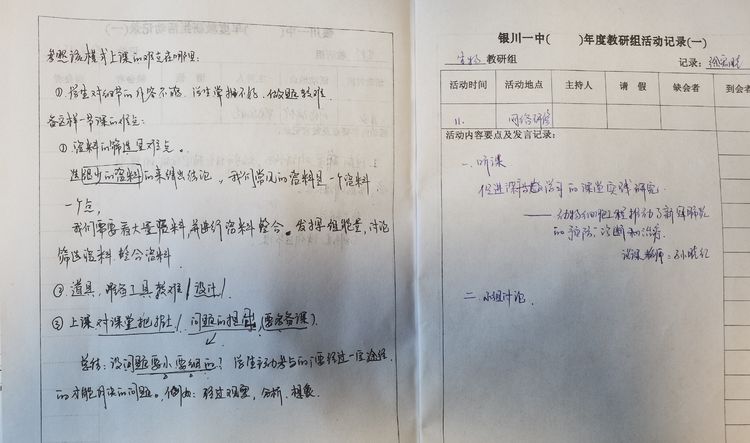 参照该模式上课的难点在哪里：
①学生对细节的内容不熟，学生掌握不好，做题较难
备这样一节课的难点：
①资料的筛选是难点。
选用少的资料的来得出结论，我们常见的资料是一个资料
一个点，
我们需要看大量资料，并进行资料整合。发挥组能量，讨论
筛选资料，整合资料
②道具，准备工具较难/设计/
③上课对课堂把控/问题的提问(需要备课).
总结：设问题要小要细而？学生主动参与的需经过一定途径
的才能解决的问题。例如：经过观察，分析、想象.
银川一中(　　)年度教研组活动记录(一)
生物 教研组 记录：
活动时间 活动地点 主持人 请 假 缺会者 到会者
11. 网络研修
活动内容要点及发言记录：
一、听课
促进深度学习的课堂实践研究
——动物细胞工程推动了新冠肺炎
的预防、诊断和治疗.
说课教师：
二、小组讨论.